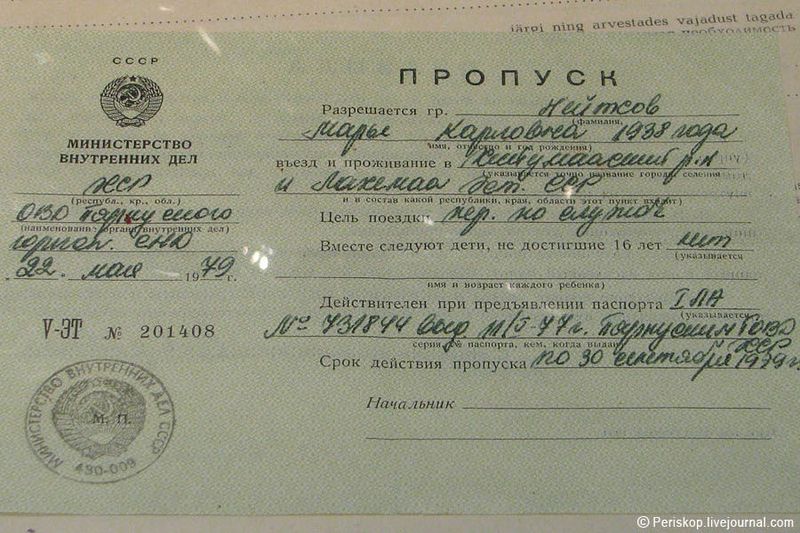 järgi ning arvestades vajadust tagada
необходимость
СССР
МИНИСТЕРСТВО
ВНУТРЕННИХ ДЕЛ
ЭССР
(республ., кр., обл.)
ОВД Пярнуского
(наименование органа внутренних дел)
22. мая 1979
V-ЭТ № 201408
МИНИСТЕРСТВО ВНУТРЕННИХ ДЕЛ СССР
М. П.
430-009
ПРОПУСК
Разрешается гр.
(фамилия,
Карловна 1938 года
имя, отчество и год рождения)
въезд и проживание в
(указывается точно название города, селения
и Лахемаа Эст. ССР
и в состав какой республики, края, области этот пункт входит)
Цель поездки пер. по службе
Вместе следуют дети, не достигшие 16 лет нет
(указывается
имя и возраст каждого ребенка)
Действителен при предъявлении паспорта
(указывается
№ 731844 выд.
серия, № паспорта, кем, когда выдан)
Срок действия пропуска по 30 сентября 1979 г.
Начальник
© Periskop.livejournal.com